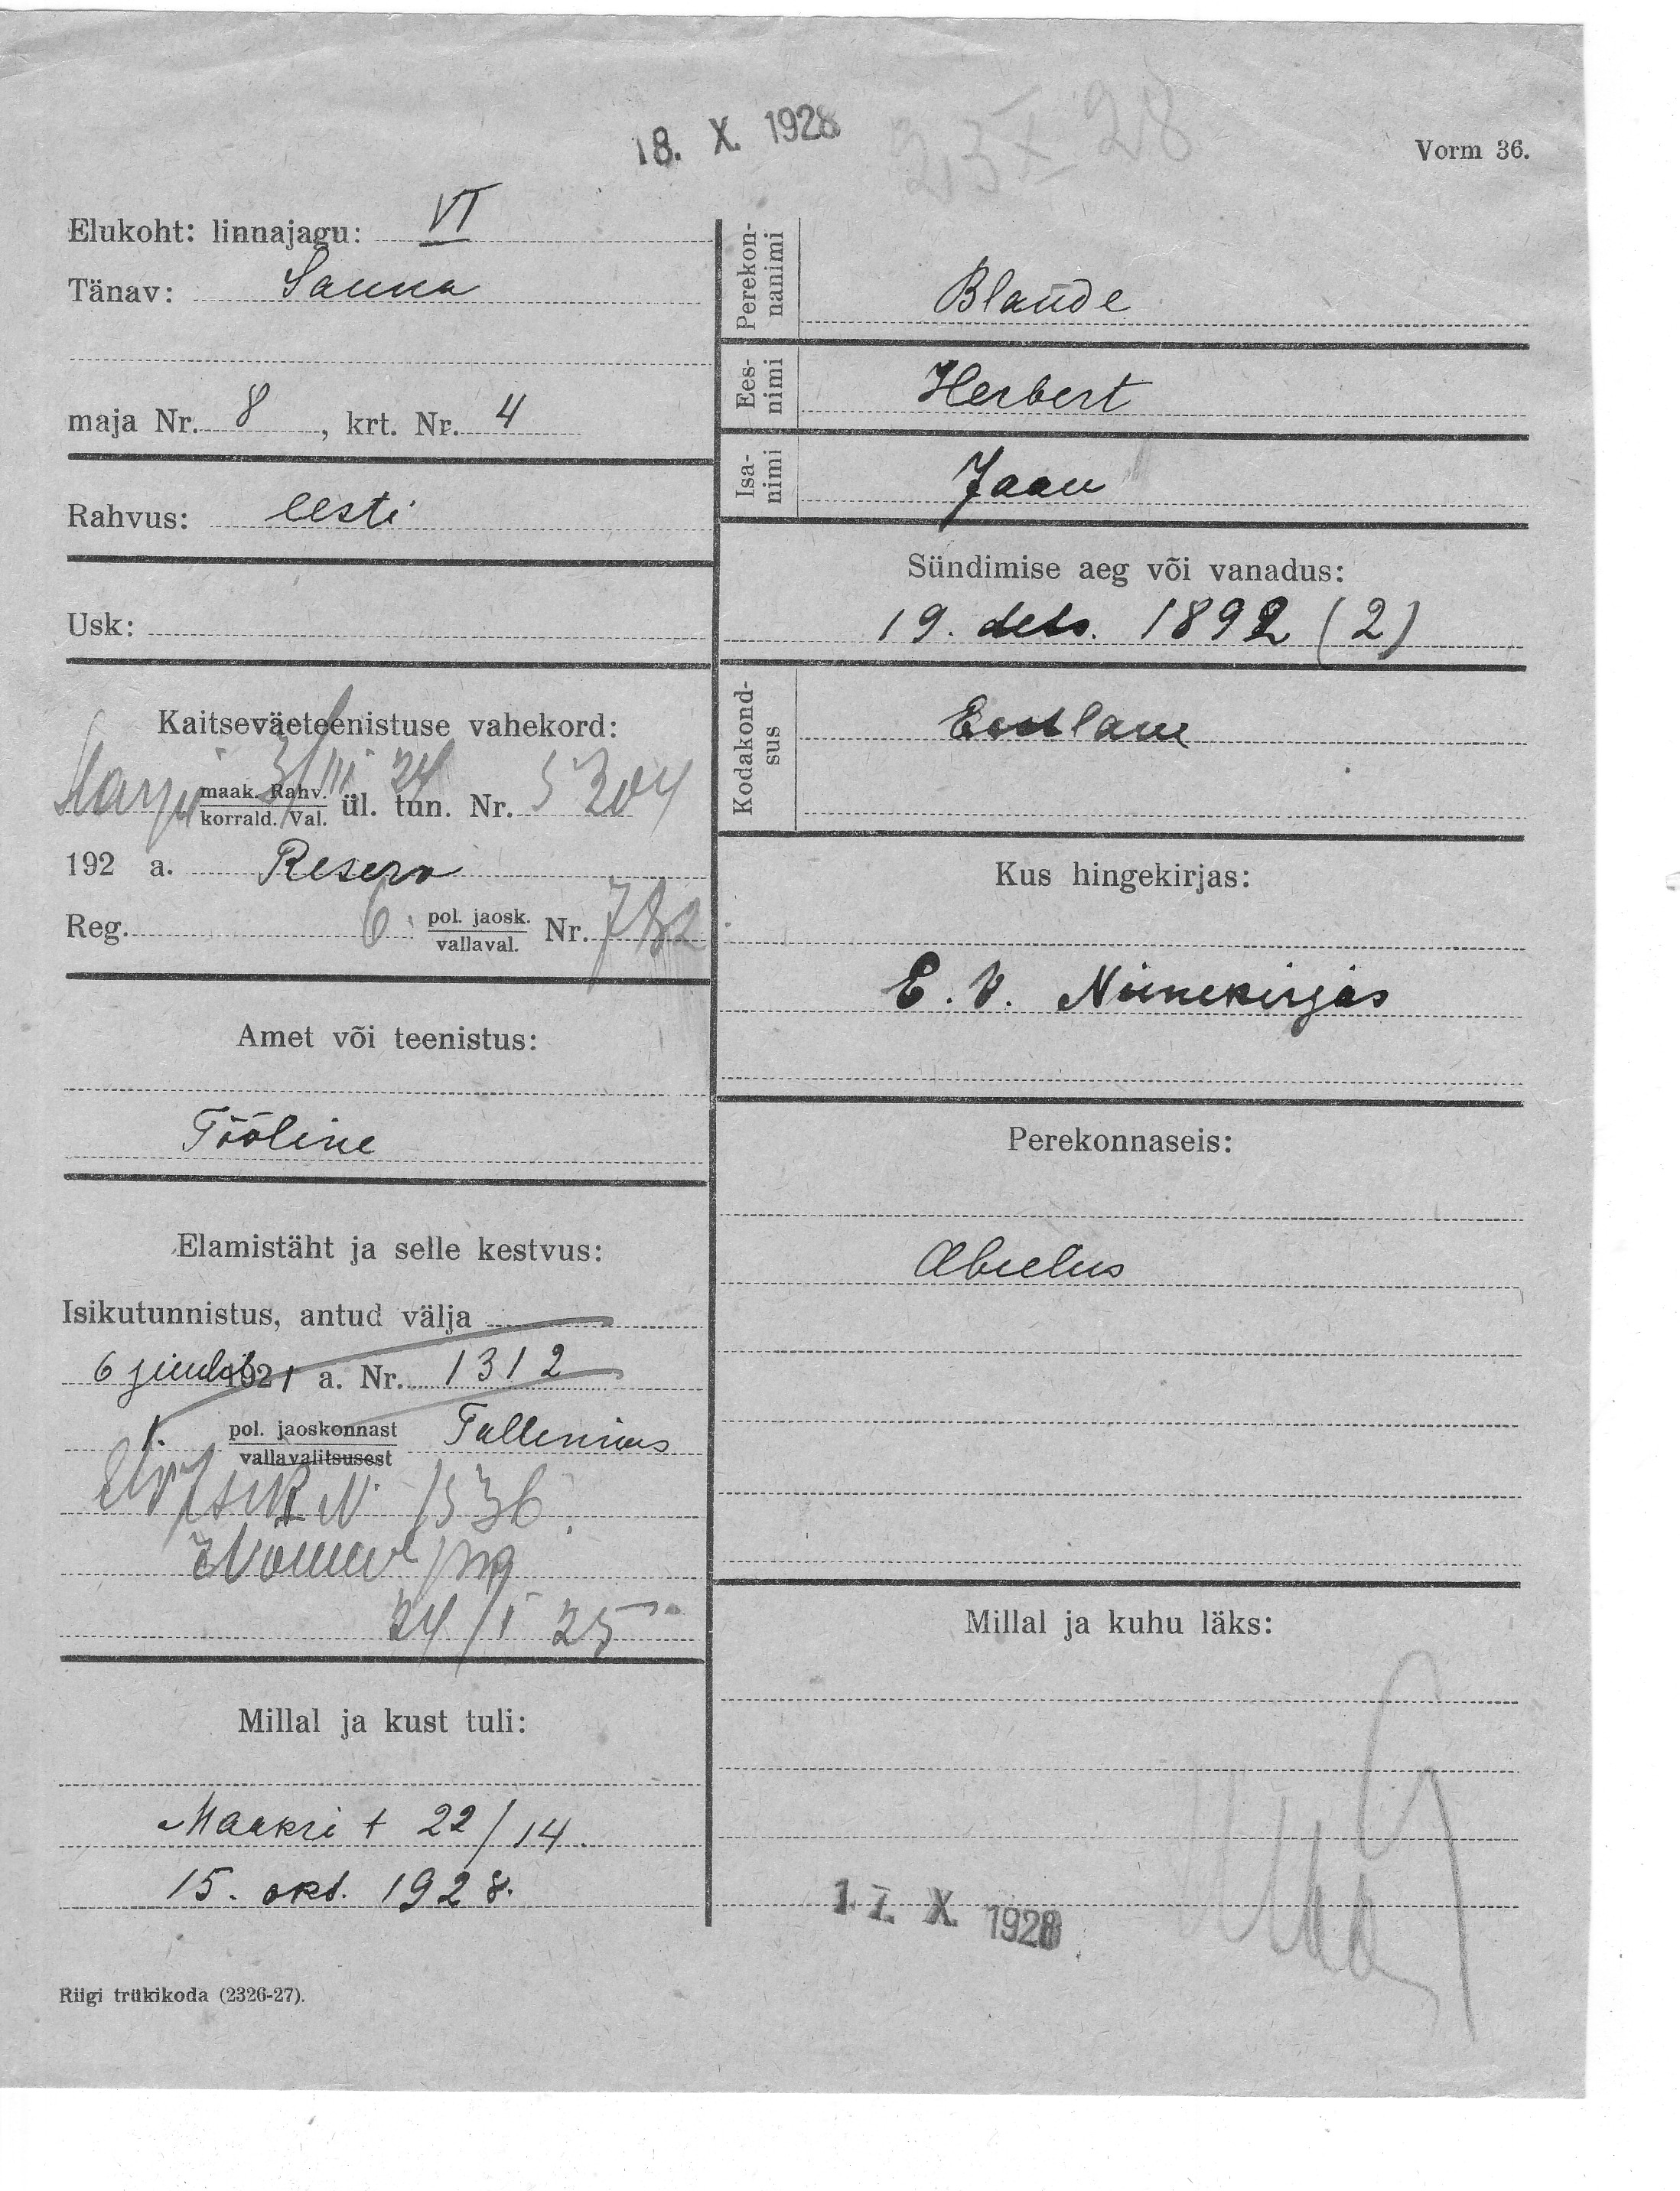 18. X. 1928
23 X 28
Vorm 36.
Elukoht: linnajagu: VI
Tänav: Sauna
maja Nr. 8, krt. Nr. 4
Rahvus: eesti
Usk:
Kaitseväeteenistuse vahekord:
Harju 31/III 24
maak. Rahv. ül. tun. Nr. 5304
korrald. Val.
192 a. Reserv
Reg. 6. pol. jaosk. Nr. 782
vallaval.
Amet või teenistus:
Tööline
Elamistäht ja selle kestvus:
Isikutunnistus, antud välja
6 juulil 1921 a. Nr. 1312
1. pol. jaoskonnast Tallinnas
vallavalitsusest
N 1536.
24/I 25
Millal ja kust tuli:
Maakri t 22/14.
15. okt. 1928.
Riigi trükikoda (2326-27).
Perekon-
nanimi
Blaude
Ees-
nimi
Herbert
Isa-
nimi
Jaan
Sündimise aeg või vanadus:
19. dets. 1892 (2)
Kodakond-
sus
Eestlane
Kus hingekirjas:
E. V. Nimekirjas
Perekonnaseis:
Abielus
Millal ja kuhu läks:
17. X. 1928